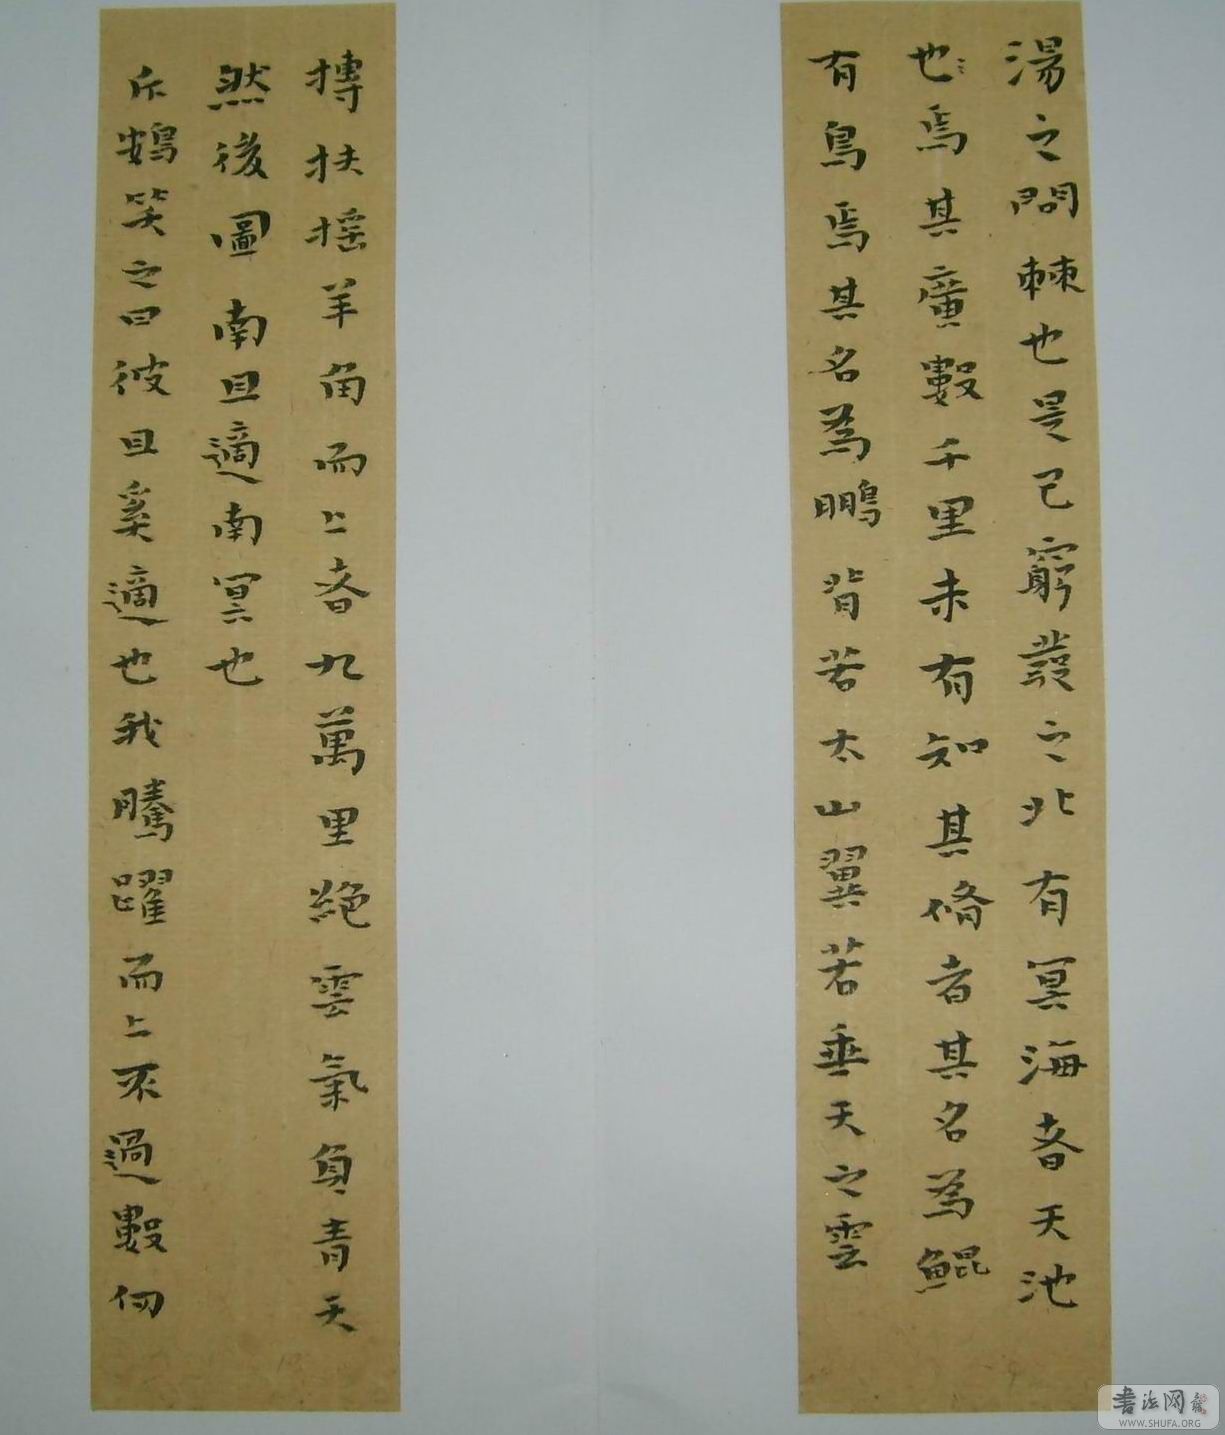 湯之問棘也是已窮發之北有冥海者天池
也焉其廣數千里未有知其脩者其名為鯤
有鳥焉其名為鵬背若太山翼若垂天之雲
摶扶搖羊角而上者九萬里絕雲氣負青天
然後圖南且適南冥也
斥鴳笑之曰彼且奚適也我騰躍而上不過數仞
書法网
WWW.SHUFA.ORG